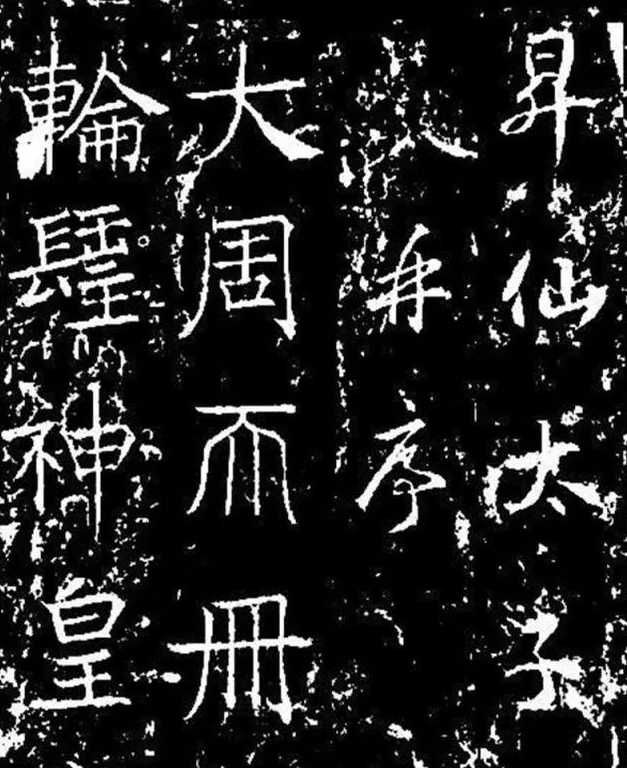 昇仙太子
并序
大周𠀑冊
輪𨲢神皇